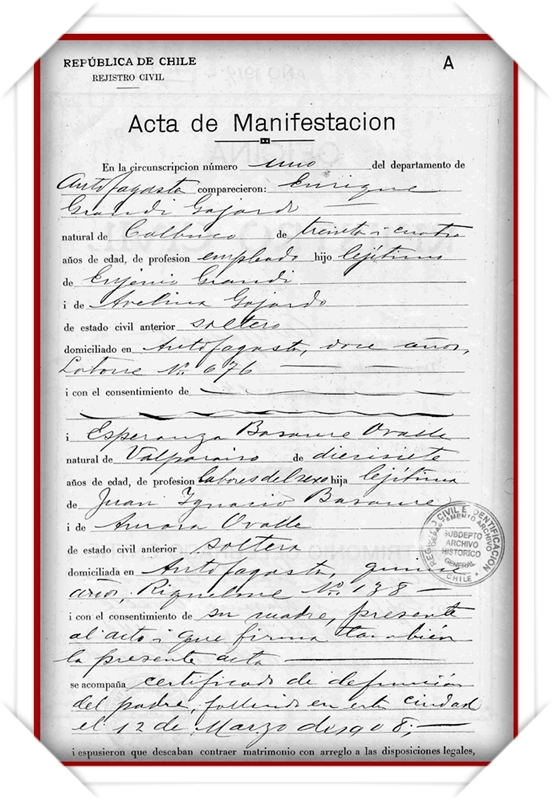 REPÚBLICA DE CHILE
REJISTRO CIVIL
A
Acta de Manifestacion
En la circunscripcion número uno del departamento de
Antofagasta comparecieron: Enrique
Grandi Gajardo
natural de Calbuco de treinta i cuatro
años de edad, de profesion empleado hijo lejítimo
de Eujenio Grandi
i de Avelina Gajardo
de estado civil anterior soltero
domiciliado en Antofagasta, doce años,
Latorre No. 676
i con el consentimiento de
i Esperanza Basaure Ovalle
natural de Valparaiso de diezisiete
años de edad, de profesion labores del sexo hija lejítima
de Juan Ignacio Basaure
i de Aurora Ovalle
de estado civil anterior soltera
domiciliada en Antofagasta, quince
años, Riquelme No. 138
i con el consentimiento de su madre, presente
al acto i que firma tambien
la presente acta
se acompaña certificado de defuncion
del padre, fallecido en esta ciudad
el 12 de Marzo de 1908;
i espusieron que descaban contraer matrimonio con arreglo a las disposiciones legales,
REGISTRO CIVIL E IDENTIFICACION
DEPARTAMENTO ARCHIVO
SUBDEPTO
ARCHIVO
HISTORICO
GENERAL
CHILE